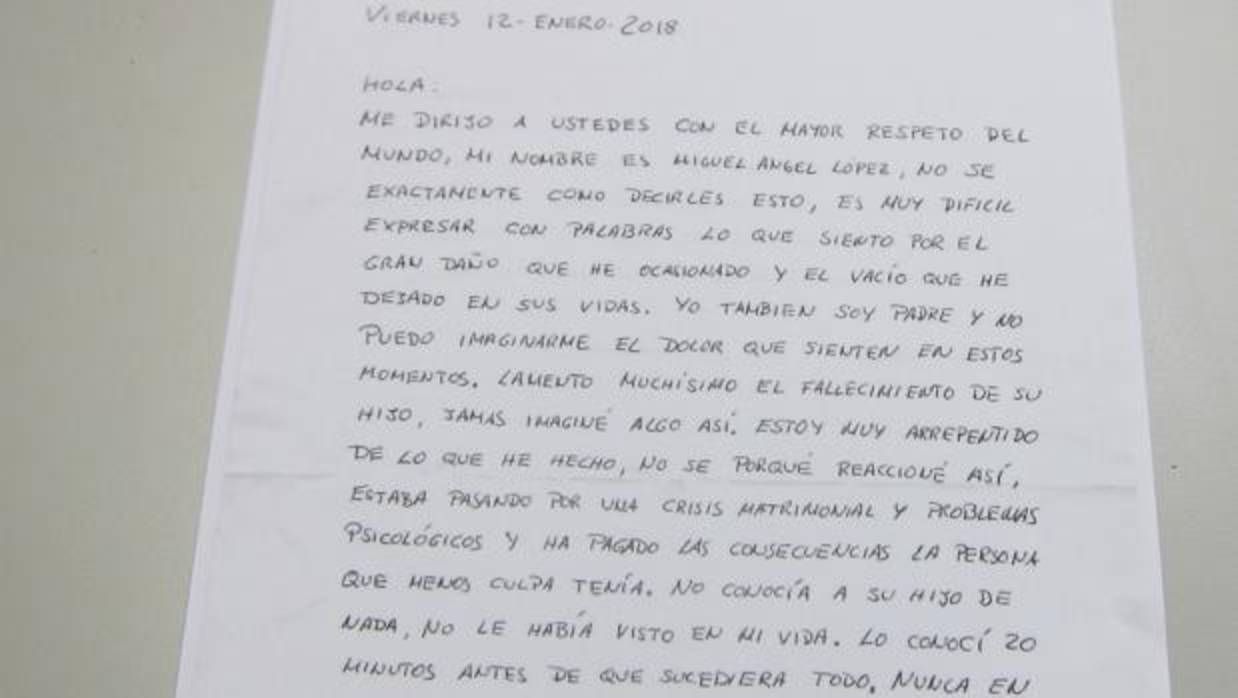 VIERNES 12-ENERO-2018
HOLA:
ME DIRIJO A USTEDES CON EL MAYOR RESPETO DEL
MUNDO, MI NOMBRE ES MIGUEL ANGEL LÓPEZ, NO SE
EXACTAMENTE COMO DECIRLES ESTO, ES MUY DIFICIL
EXPRESAR CON PALABRAS LO QUE SIENTO POR EL
GRAN DAÑO QUE HE OCASIONADO Y EL VACÍO QUE HE
DEJADO EN SUS VIDAS. YO TAMBIEN SOY PADRE Y NO
PUEDO IMAGINARME EL DOLOR QUE SIENTEN EN ESTOS
MOMENTOS. LAMENTO MUCHÍSIMO EL FALLECIMIENTO DE SU
HIJO, JAMAS IMAGINÉ ALGO ASÍ. ESTOY MUY ARREPENTIDO
DE LO QUE HE HECHO, NO SE PORQUÉ REACCIONÉ ASÍ,
ESTABA PASANDO POR UNA CRISIS MATRIMONIAL Y PROBLEMAS
PSICOLÓGICOS Y HA PAGADO LAS CONSECUENCIAS LA PERSONA
QUE MENOS CULPA TENÍA. NO CONOCÍA A SU HIJO DE
NADA, NO LE HABÍA VISTO EN MI VIDA. LO CONOCÍ 20
MINUTOS ANTES DE QUE SUCEDIERA TODO. NUNCA EN